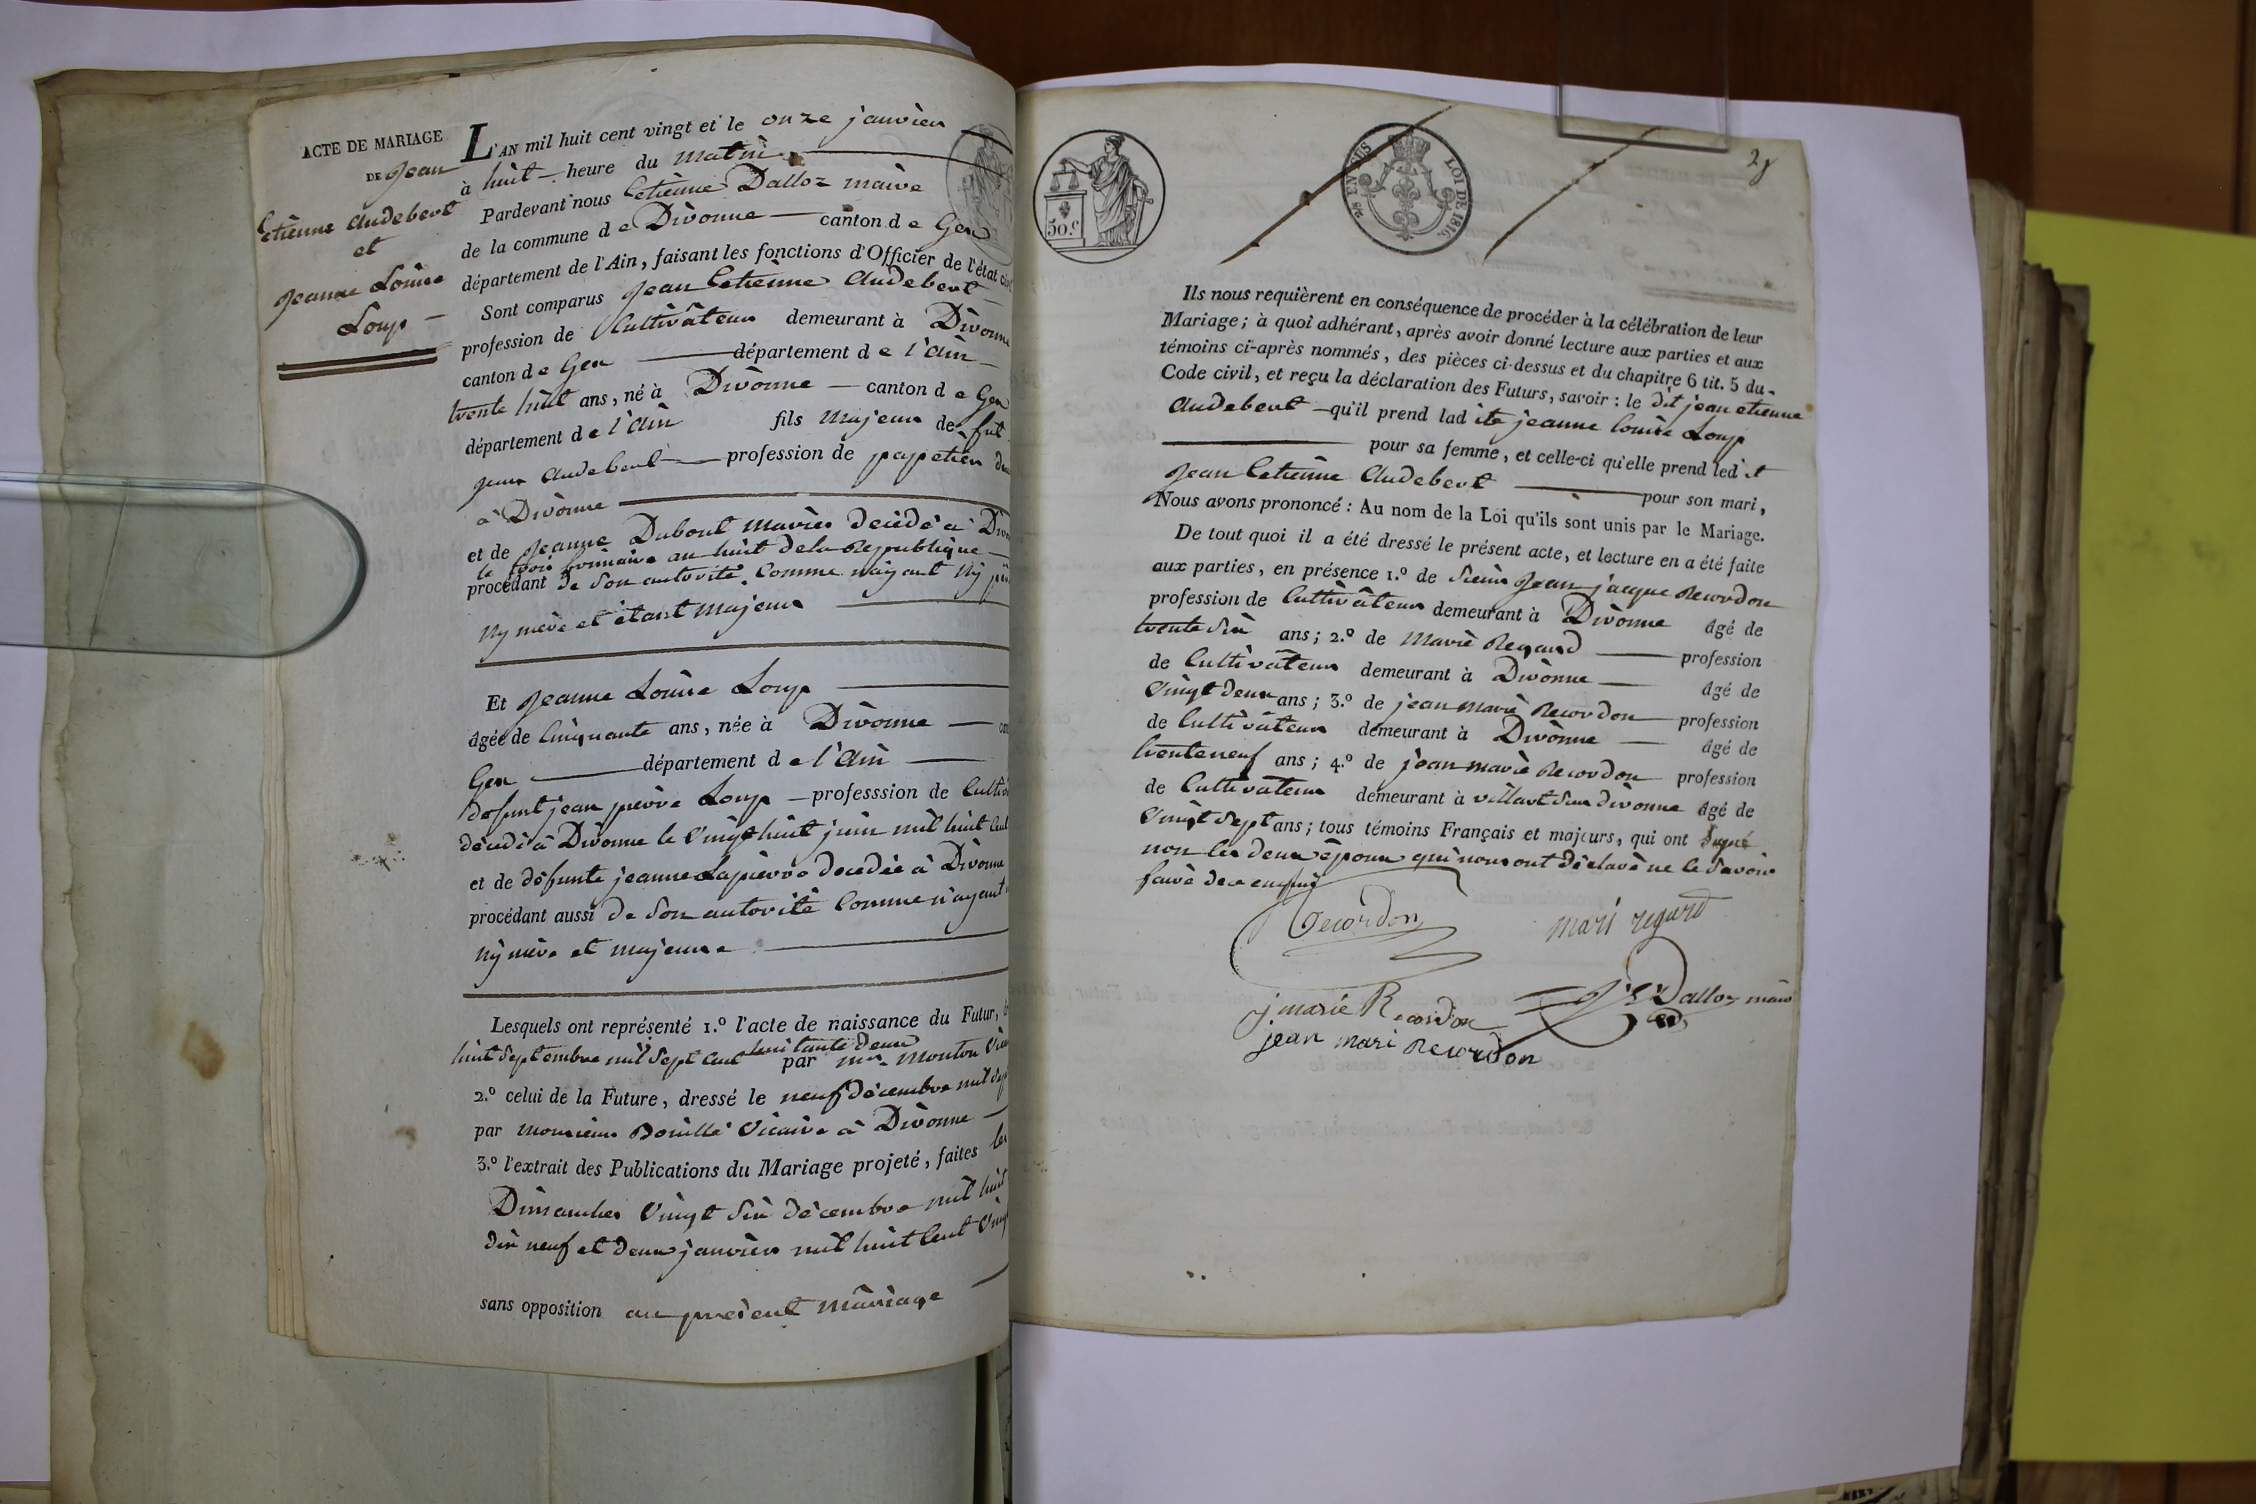 ACTE DE MARIAGE
DE Jean
Etiènne Audebert
et
Jeanne Louise
Loup
L'AN mil huit cent vingt et le onze janvier
à huit heure du matin
Pardevant nous Etiènne Dalloz maire
de la commune de Divonne canton de Gex
département de l'Ain, faisant les fonctions d'Officier de l'état
Sont comparus Jean Etiènne Audebert
profession de Cultivateur demeurant à Divonne
canton de Gex département de l'Ain
trente huit ans, né à Divonne canton de Gex
département de l'Ain fils Majeur de fut
jean Audebert profession de papetier
à Divonne
et de Jeanne Dubout mariés décédé à
le trois brumaire an huit de la République
procédant de Son autorité, Comme n'ayant Ny
Ny mère et étant Majeur
Et Jeanne Louise Loup
âgée de Cinquante ans, née à Divonne
Gex département de l'Ain
défunt jean pierre Loup professsion de
décédé à Divonne le Vingt huit juin mil huit Cent
et de défunte jeanne Lapierre décédée à Divonne
procédant aussi de Son autorité Comme n'ayant
Ny mère et majeure
Lesquels ont représenté 1.º l'acte de naissance du Futur,
huitante deux
huit Septembre mil Sept Cent par Mr. Mouton
2.º celui de la Future, dressé le neuf décembre mil
par monsieur Bouillé Vicaire à Divonne
3.º l'extrait des Publications du Mariage projeté, faites les
Dimanches Vingt Six décembre mil huit
dix neuf et deux janvier mil huit Cent Vingt
sans opposition au présent Mariage
50.c
EN SUS
LOI DE 1816.
Ils nous requièrent en conséquence de procéder à la célébration de leur
Mariage; à quoi adhérant, après avoir donné lecture aux parties et aux
témoins ci-après nommés, des pièces ci-dessus et du chapitre 6 tit. 5 du
Code civil, et reçu la déclaration des Futurs, savoir: le dit jean etienne
Audebert qu'il prend ladite jeanne louise Loup
pour sa femme, et celle-ci qu'elle prend ledit
Jean Etiènne Audebert pour son mari,
Nous avons prononcé: Au nom de la Loi qu'ils sont unis par le Mariage.
De tout quoi il a été dressé le présent acte, et lecture en a été faite
aux parties, en présence 1.º de Sieur Jean jacque Recordon
profession de Cultivateur demeurant à Divonne âgé de
trente Six ans; 2.º de Marie Regard profession
de Cultivateur demeurant à Divonne âgé de
Vingt deux ans; 3.º de jean Marie Recordon profession
de Cultivateur demeurant à Divonne âgé de
trente neuf ans; 4.º de jean marie Recordon profession
de Cultivateur demeurant à villart Sur divonne âgé de
Vingt Sept ans; tous témoins Français et majeurs, qui ont Signé
non les deux époux qui nous ont déclaré ne le Savoir
faire de ce enquis
Recordon
mari regard
j marie Recordon
Dalloz maire
jean mari Recordon